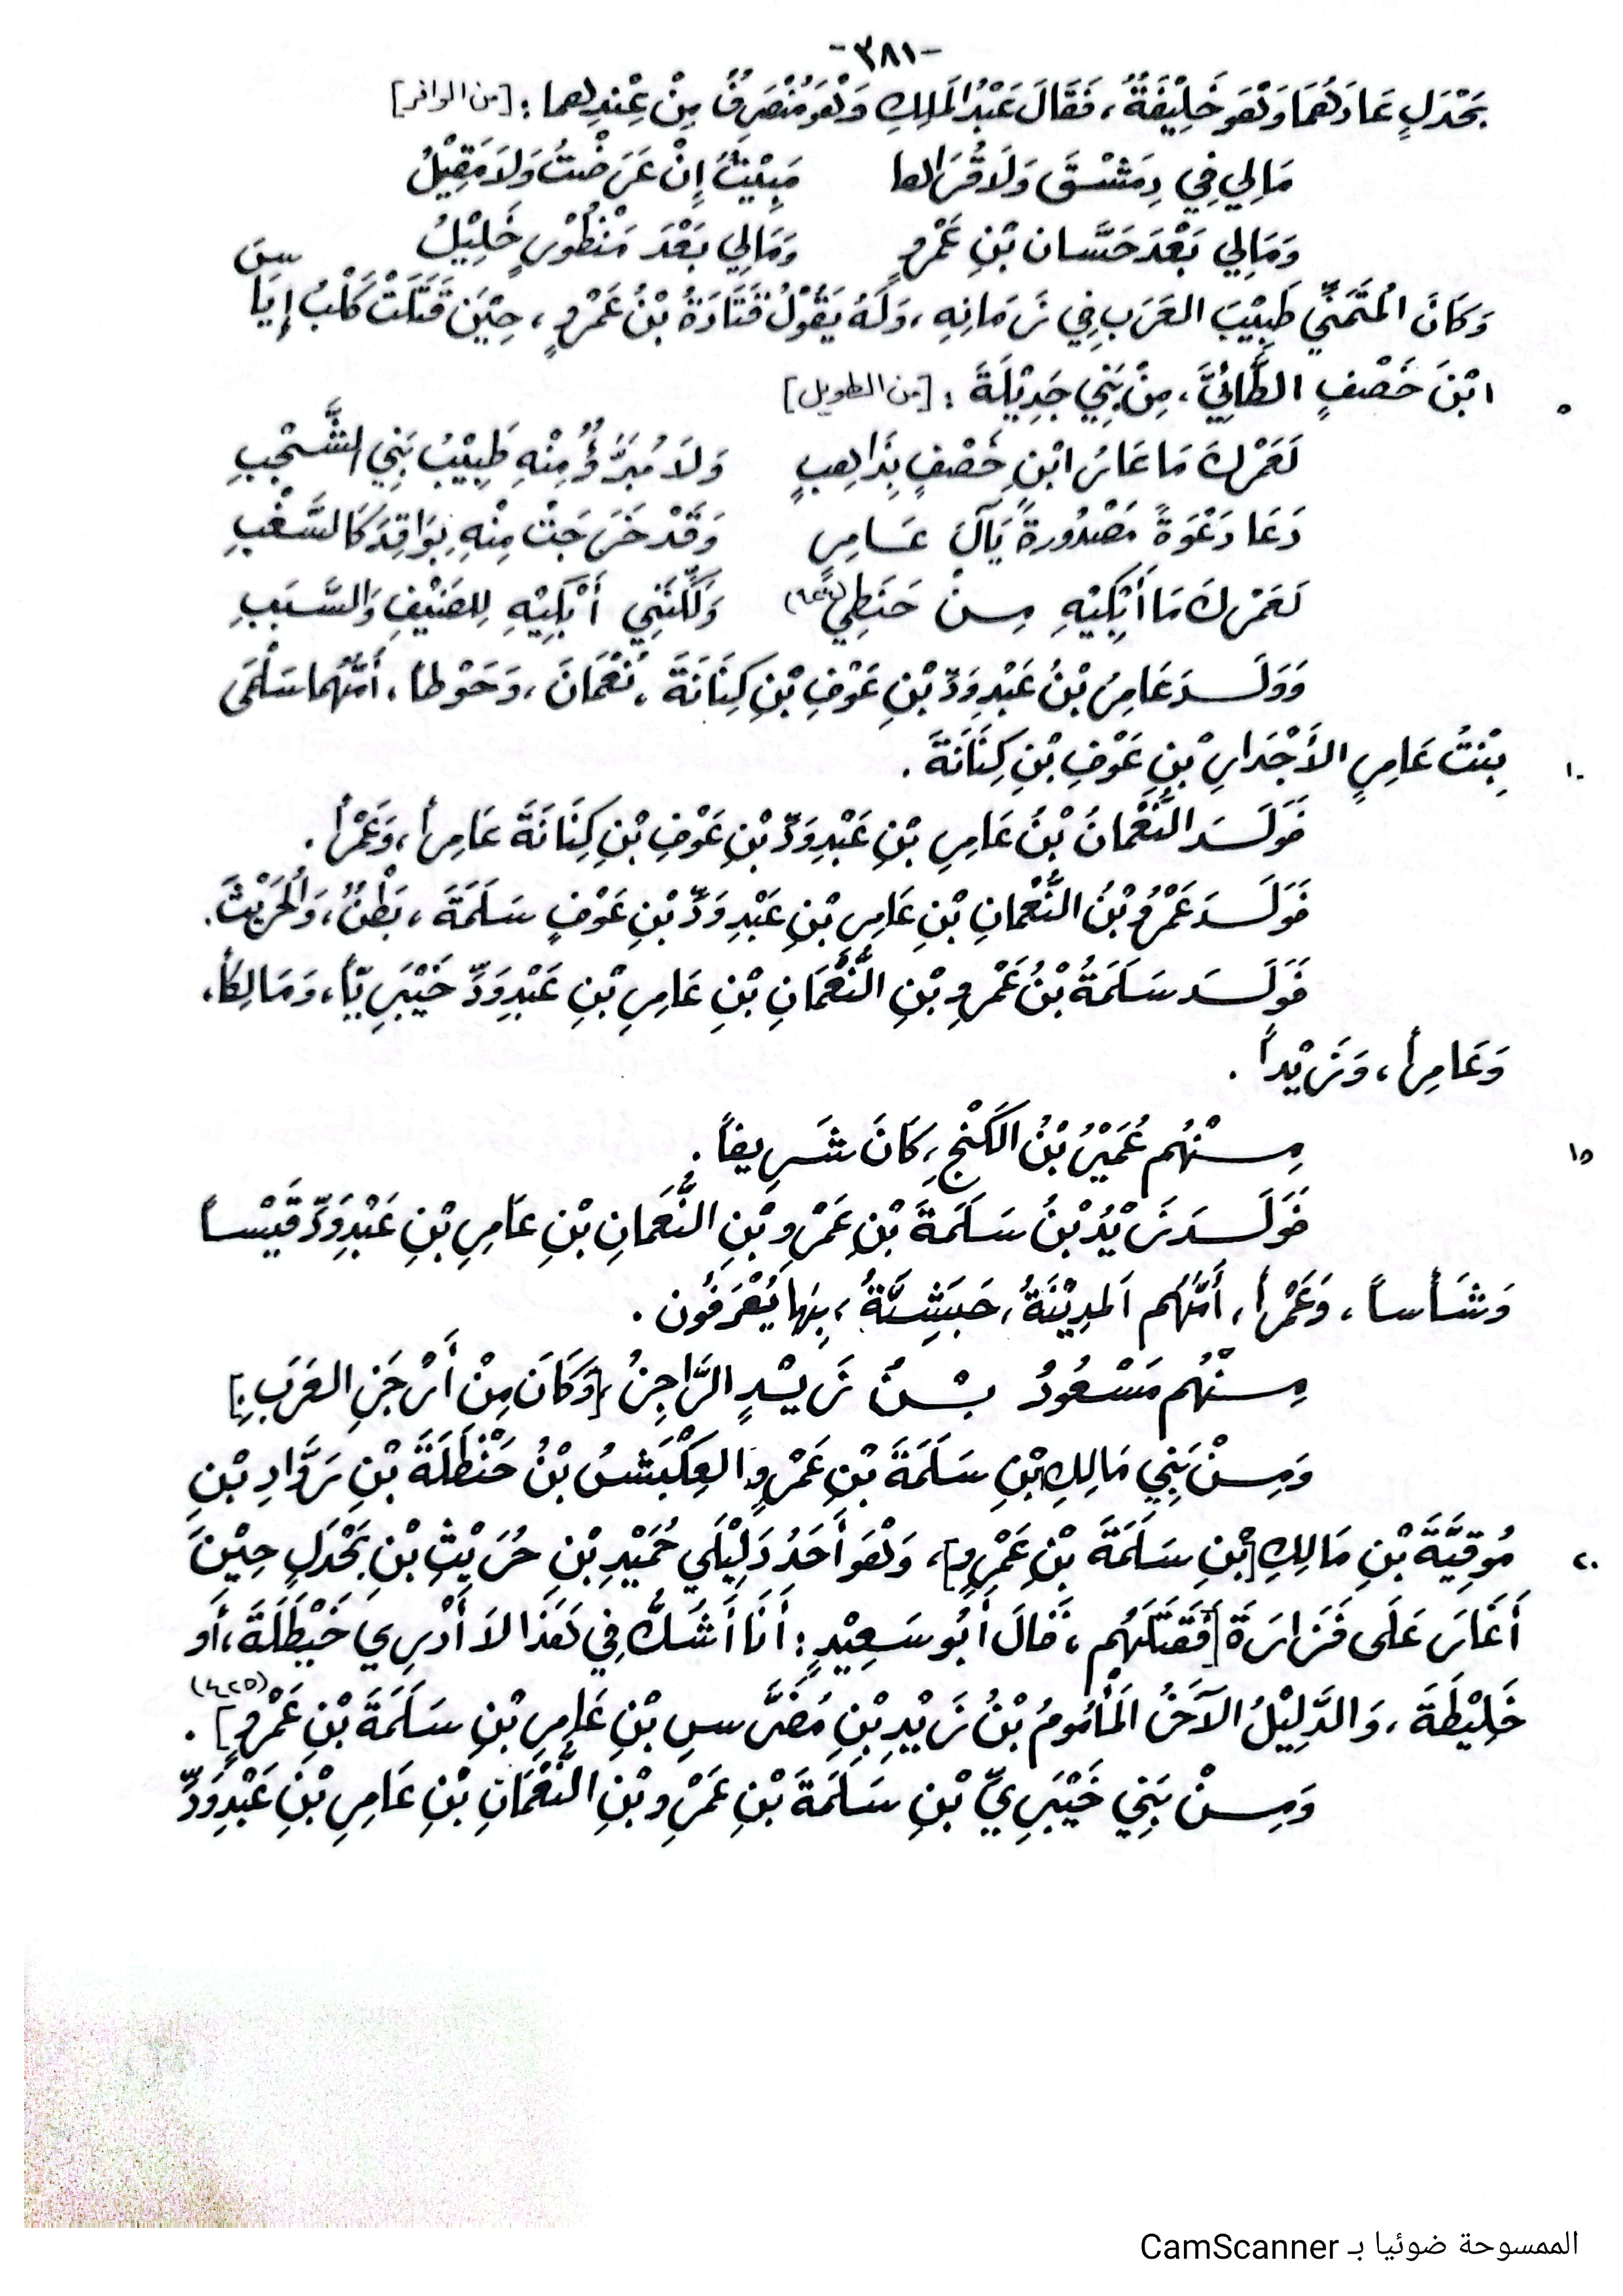 -٣٨١-
بَحْدَلٍ عَادَهُمَا وَهْوَ خَلِيْفَةٌ، فَقَالَ عَبْدُ المَلِكِ وَهْوَ مُنْصَرِفٌ مِنْ عِنْدِهما : [من الوافر]
مَالِي فِي دِمَشْقَ وَلَا قُرَاها مَبِيْتٌ إِنْ عَرَضْتُ وَلَا مَقِيْلُ
وَمَالِي بَعْدَ حَسَّان بْنِ عَمْرٍو وَمَالِي بَعْدَ مَنْظُوْرٍ خَلِيْلُ
وَكَانَ المُتَمَنِّي طَبِيْبَ العَرَبِ فِي زَمَانِهِ، وَلَهُ يَقُوْلُ قَتَادَةُ بْنُ عَمْرٍو، حِيْنَ قَتَلَتْ كَلْبُ إِيَاسَ
٥ ابْنَ خَصْفٍ الطَّائِيَّ، مِنْ بَنِي جَدِيْلَةَ : [من الطويل]
لَعَمْرُكَ مَا عَارُ ابْنِ خَصْفٍ بِذَاهِبٍ وَلَا مُبَرَّؤٌ مِنْهِ طَبِيْبُ بَنِي الشَّجْبِ
دَعَا دَعْوَةً مَصْدُورةً يَآلَ عَامِرٍ وَقَدْ خَرَجَتْ مِنْهِ بِوَاقِدَ كَالسَّغْبِ
لَعَمْرُكَ مَا أَبْكِيْهِ مِنْ حَنَطِيٍّ وَلَكِنَّنِي أَبْكِيْهِ لِلضَيْفِ وَالسَّبَبِ
وَوَلَدَ عَامِرُ بْنُ عَبْدِ وَدِّ بْنِ عَوْفِ بْنِ كِنَانَةَ، نُعْمَانَ، وَحَوْطاً، أُمُّهُما سَلْمَى
١٠ بِنْتُ عَامِرٍ الأَجْدَارِ بْنِ عَوْفِ بْنِ كِنَانَةَ .
فَوَلَدَ النُّعْمَانُ بْنُ عَامِرِ بْنِ عَبْدِ وَدِّ بْنِ عَوْفِ بْنِ كِنَانَةَ عَامِراً، وَعَمْراً .
فَوَلَدَ عَمْرُو بْنُ النُّعْمَانِ بْنِ عَامِرِ بْنِ عَبْدِ وَدِّ بْنِ عَوْفٍ سَلَمَةَ، بَطْنٌ، وَالحُرَيْثَ.
فَوَلَدَ سَلَمَةُ بْنُ عَمْرِو بْنِ النُّعْمَانِ بْنِ عَامِرِ بْنِ عَبْدِ وَدِّ خَيْبَرِيّاً، وَمَالِكاً،
وَعَامِراً، وَزَيْداً .
١٥ مِنْهُم عُمَيْرُ بْنُ الكَنْجِ، كَانَ شَرِيفاً .
فَوَلَدَ زَيْدُ بْنُ سَلَمَةَ بْنِ عَمْرِو بْنِ النُّعْمَانِ بْنِ عَامِرِ بْنِ عَبْدِ وَدِّ قَيْساً
وَشَأْساً، وَعَمْراً، أُمُّهُم المَدِيْنَةُ، حَبَشِيَّةٌ، بِهَا يُعْرَفُون .
مِنْهُم مَسْعُودُ بْنُ زَيْدٍ الرَّاجِزُ، [وَكَانَ مِنْ أَرْجَزِ العَرَبِ.]
وَمِنْ بَنِي مَالِكِ بْنِ سَلَمَةَ بْنِ عَمْرٍو العِكْبَشُ بْنُ حَنْظَلَةَ بْنِ رَوَّادِ بْنِ
٢٠ مُوقِيَّةَ بْنِ مَالِكِ [بْنِ سَلَمَةَ بْنِ عَمْرٍو]، وَهْوَ أَحَدُ دَلِيْلَي حُمَيْدِ بْنِ حُرَيْثِ بْنِ بَحْدَلٍ حِيْنَ
أَغَارَ عَلَى فَزَارَةَ [فَقَتَلَهُم، قَالَ أَبُو سَعِيْدٍ : أَنَا أَشُكُّ فِي هَذَا لَا أَدْرِي خَيْطَلَةَ، أَو
خَلِيْطَةَ، وَالدَّلِيْلُ الآخَرُ المَأْمُومُ بْنُ زَيْدِ بْنِ مُضَرِّسِ بْنِ عَامِرِ بْنِ سَلَمَةَ بْنِ عَمْرٍو] (٤٢٥) .
وَمِنْ بَنِي خَيْبَرِيِّ بْنِ سَلَمَةَ بْنِ عَمْرِو بْنِ النُّعْمَانِ بْنِ عَامِرِ بْنِ عَبْدِ وَدِّ
الممسوحة ضوئيا بـ CamScanner